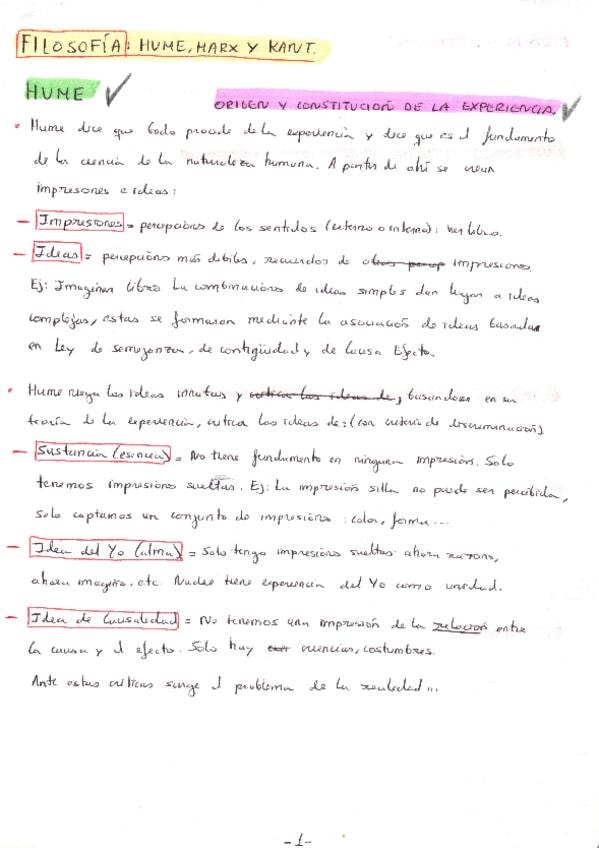 FILOSOFÍA: HUME, MARX Y KANT.
HUME
ORIGEN Y CONSTITUCIÓN DE LA EXPERIENCIA.
• Hume dice que todo procede de la experiencia y dice que es el fundamento
de la ciencia de la naturaleza humana. A partir de ahí se crean
impresiones e ideas:
- Impresiones = percepciones de los sentidos (externo o interno): ver libro.
- Ideas = percepciones más débiles, recuerdos de otras percep impresiones.
Ej: Imaginar libro. La combinaciones de ideas simples dan lugar a ideas
complejas, estas se formaron mediante la asociación de ideas basadas
en Ley de semejanza, de contigüidad y de Causa Efecto.
• Hume niega las ideas innatas y critica las ideas de, basandose en su
teoría de la experiencia, critica las ideas de: (con criterio de discriminación)
- Sustancia (esencia) = No tiene fundamento en ninguna impresión. Solo
tenemos impresiones sueltas. Ej: La impresión silla no puede ser percibida,
solo captamos un conjunto de impresiones: color, forma...
- Idea del Yo (alma) = Solo tengo impresiones sueltas: ahora razono,
ahora imagino, etc. Nadie tiene experiencia del Yo como unidad.
- Idea de Causalidad = No tenemos una impresión de la relación entre
la causa y el efecto. Solo hay creencias, costumbres.
Ante estas críticas surge el problema de la realidad...
-1-